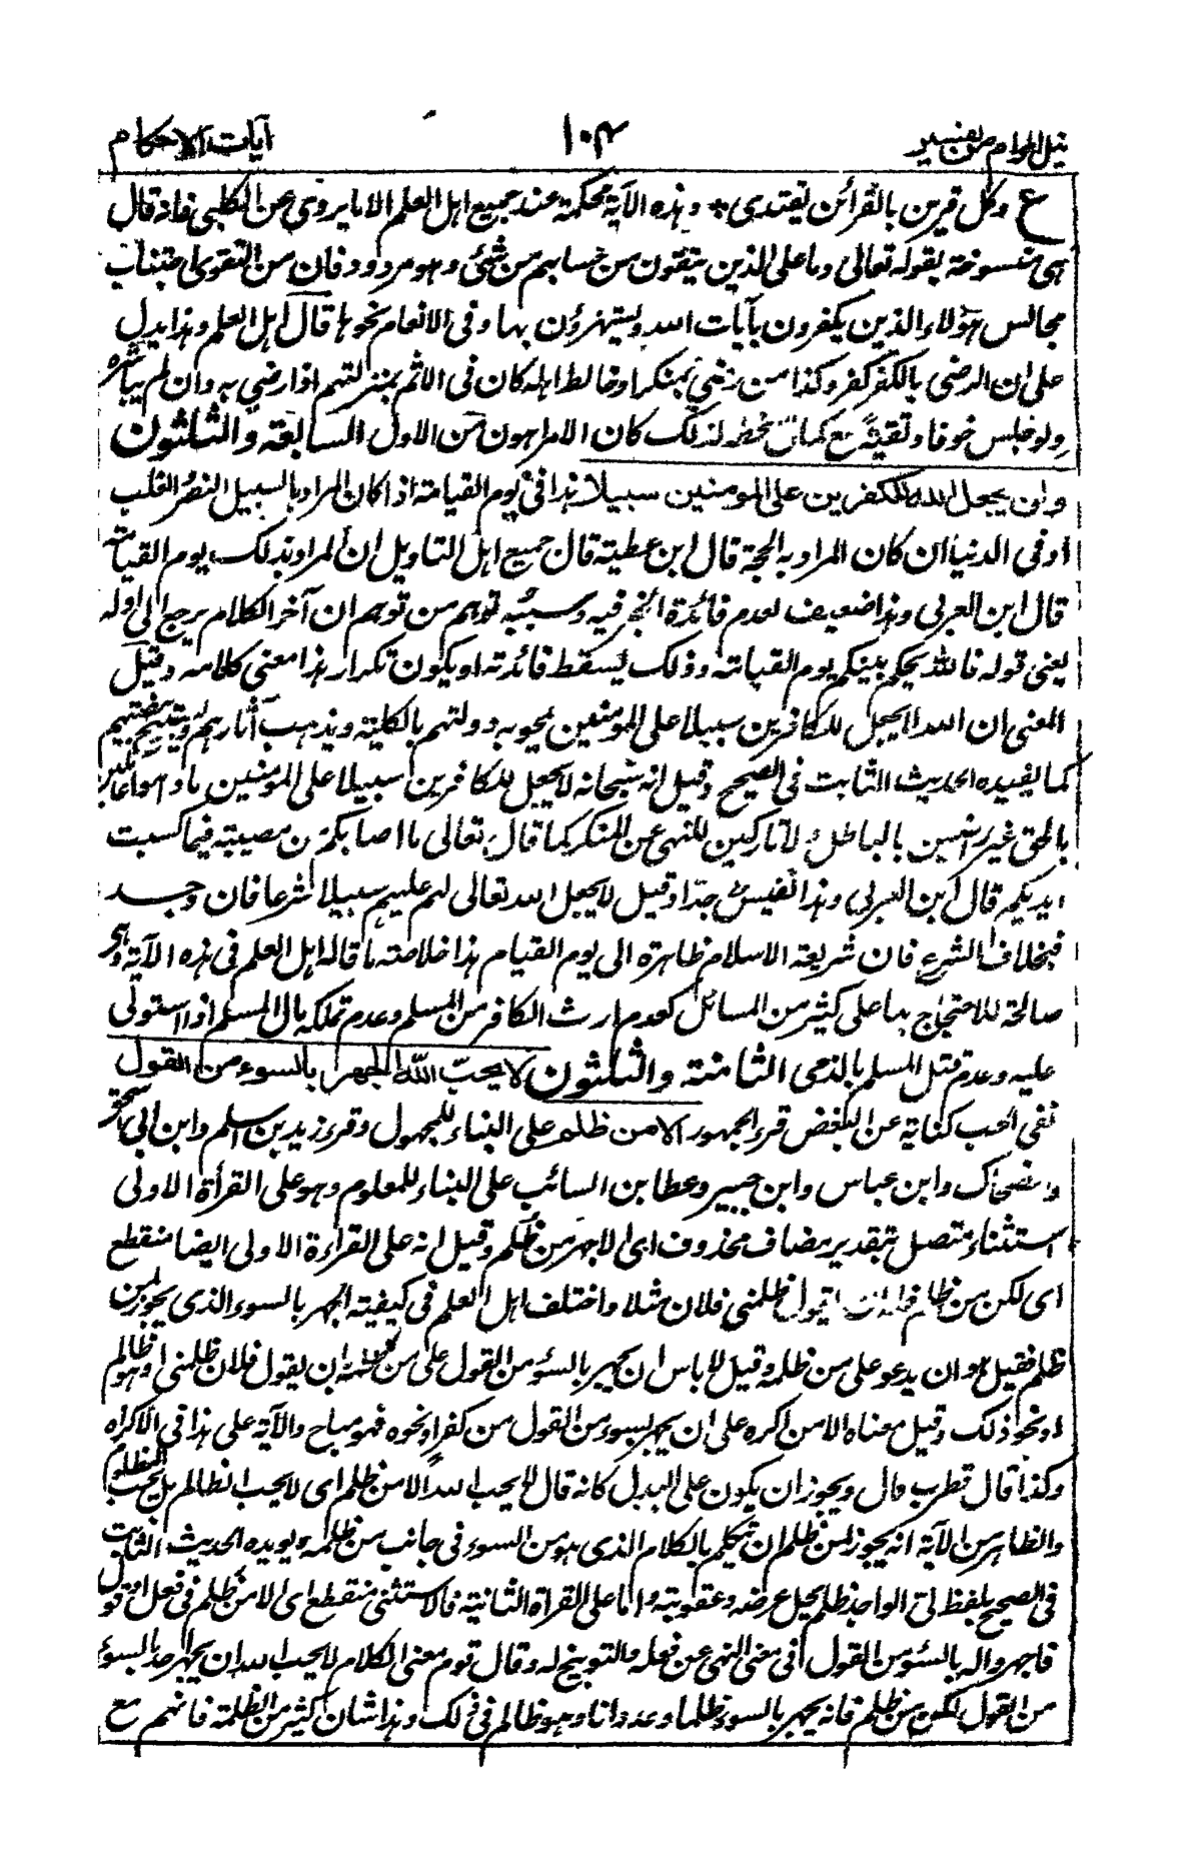 نيل المرام من تفسير ١٠٤ آيات الاحكام
ع وكل قرين بالقرائن يقتدى * وهذه الآية محكمة عند جميع اهل العلم الا ما يروى عن الكلبى فانه قال
هى منسوخة بقوله تعالى وما على الذين يتقون من حسابهم من شئ وهو مردود فان من التقوى اجتناب
مجالس هؤلاء الذين يكفرون بآيات الله ويستهزؤن بها وفى الانعام نحوها قال اهل العلم وهذا يدل
على ان الرضى بالكفر كفر وكذا من رضى بمنكر او خالط اهله كان فى الاثم بمنزلتهم اذا رضى به وان لم يباشره
ولو جلس خوفا وتقية مع كمال سخطه لذلك كان الامر اهون من الاول السابعة والثلثون
ولن يجعل الله للكفرين على المومنين سبيلا هذا فى يوم القيامة اذا كان المراد بالسبيل النصر والغلب
او فى الدنيا ان كان المراد به الحجة قال ابن عطية قال جميع اهل التاويل ان المراد بذلك يوم القيامة
قال ابن العربى وهذا ضعيف لعدم فائدة الخبر فيه وسببه توهم من توهم ان آخر الكلام يرجع الى اوله
يعنى قوله فالله يحكم بينكم يوم القيامة وذلك يسقط فائدته او يكون تكرار هذا معنى كلامه وقيل
المعنى ان الله لا يجعل للكافرين سبيلا على المومنين يمحو به دولتهم بالكلية ويذهب آثارهم ويستبيح بيضتهم
كما يفيده الحديث الثابت فى الصحيح وقيل انه سبحانه لا يجعل للكافرين سبيلا على المومنين ما داموا عاملين
بالحق غير راضين بالباطل ولا تاركين للنهى عن المنكر كما قال تعالى ما اصابكم من مصيبة فبما كسبت
ايديكم قال ابن العربى وهذا نفيس جدا وقيل لا يجعل الله تعالى لهم عليهم سبيلا شرعا فان وجد
فبخلاف الشرع فان شريعة الاسلام ظاهرة الى يوم القيام هذا خلاصة ما قاله اهل العلم فى هذه الآية وهى
صالحة للاحتجاج بها على كثير من المسائل كعدم ارث الكافر من المسلم وعدم تملكه مال المسلم اذا استولى
عليه وعدم قتل المسلم بالذمى الثامنة والثلثون لا يحب الله الجهر بالسوء من القول
نفى الحب كناية عن البغض قرء الجمهور الا من ظلم على البناء للمجهول وقرء زيد بن اسلم وابن ابى اسحق
والضحاك وابن عباس وابن جبير وعطا بن السائب على البناء للمعلوم وهو على القرأة الاولى
استثناء متصل بتقدير مضاف محذوف اى الا جهر من ظلم وقيل انه على القراءة الاولى ايضا منقطع
اى لكن من ظلم فله ان يقول ظلمنى فلان مثلا واختلف اهل العلم فى كيفية الجهر بالسوء الذى يجوز لمن
ظلم فقيل هو ان يدعو على من ظلمه وقيل لا باس ان يجهر بالسوء من القول على من ظلمه بان يقول فلان ظلمنى او هو ظالم
او نحو ذلك وقيل معناه الا من اكره على ان يجهر بسوء من القول من كفر او نحوه فهو مباح والآية على هذا فى الاكراه
وكذا قال قطرب قال ويجوز ان يكون على البدل كانه قال لا يحب الله الا من ظلم اى لا يحب الظالم بل يحب المظلوم
والظاهر من الآية انه يجوز لمن ظلم ان يتكلم بالكلام الذى هو من السوء فى جانب من ظلمه ويويده الحديث الثابت
فى الصحيح بلفظ لى الواجد ظلم يحل عرضه وعقوبته واما على القراة الثانية فالاستثنى منقطع اى الا من ظلم فى فعل او قول
فاجهروا له بالسوء من القول فى معنى النهى عن فعله والتوبيخ له وقال قوم معنى الكلام لا يحب الله ان يجهر احد بالسوء
من القول لكن من ظلم فانه يجهر بالسوء ظلما وعدوانا وهو ظالم فى ذلك وهذا شان كثير من الظلمة فانهم مع